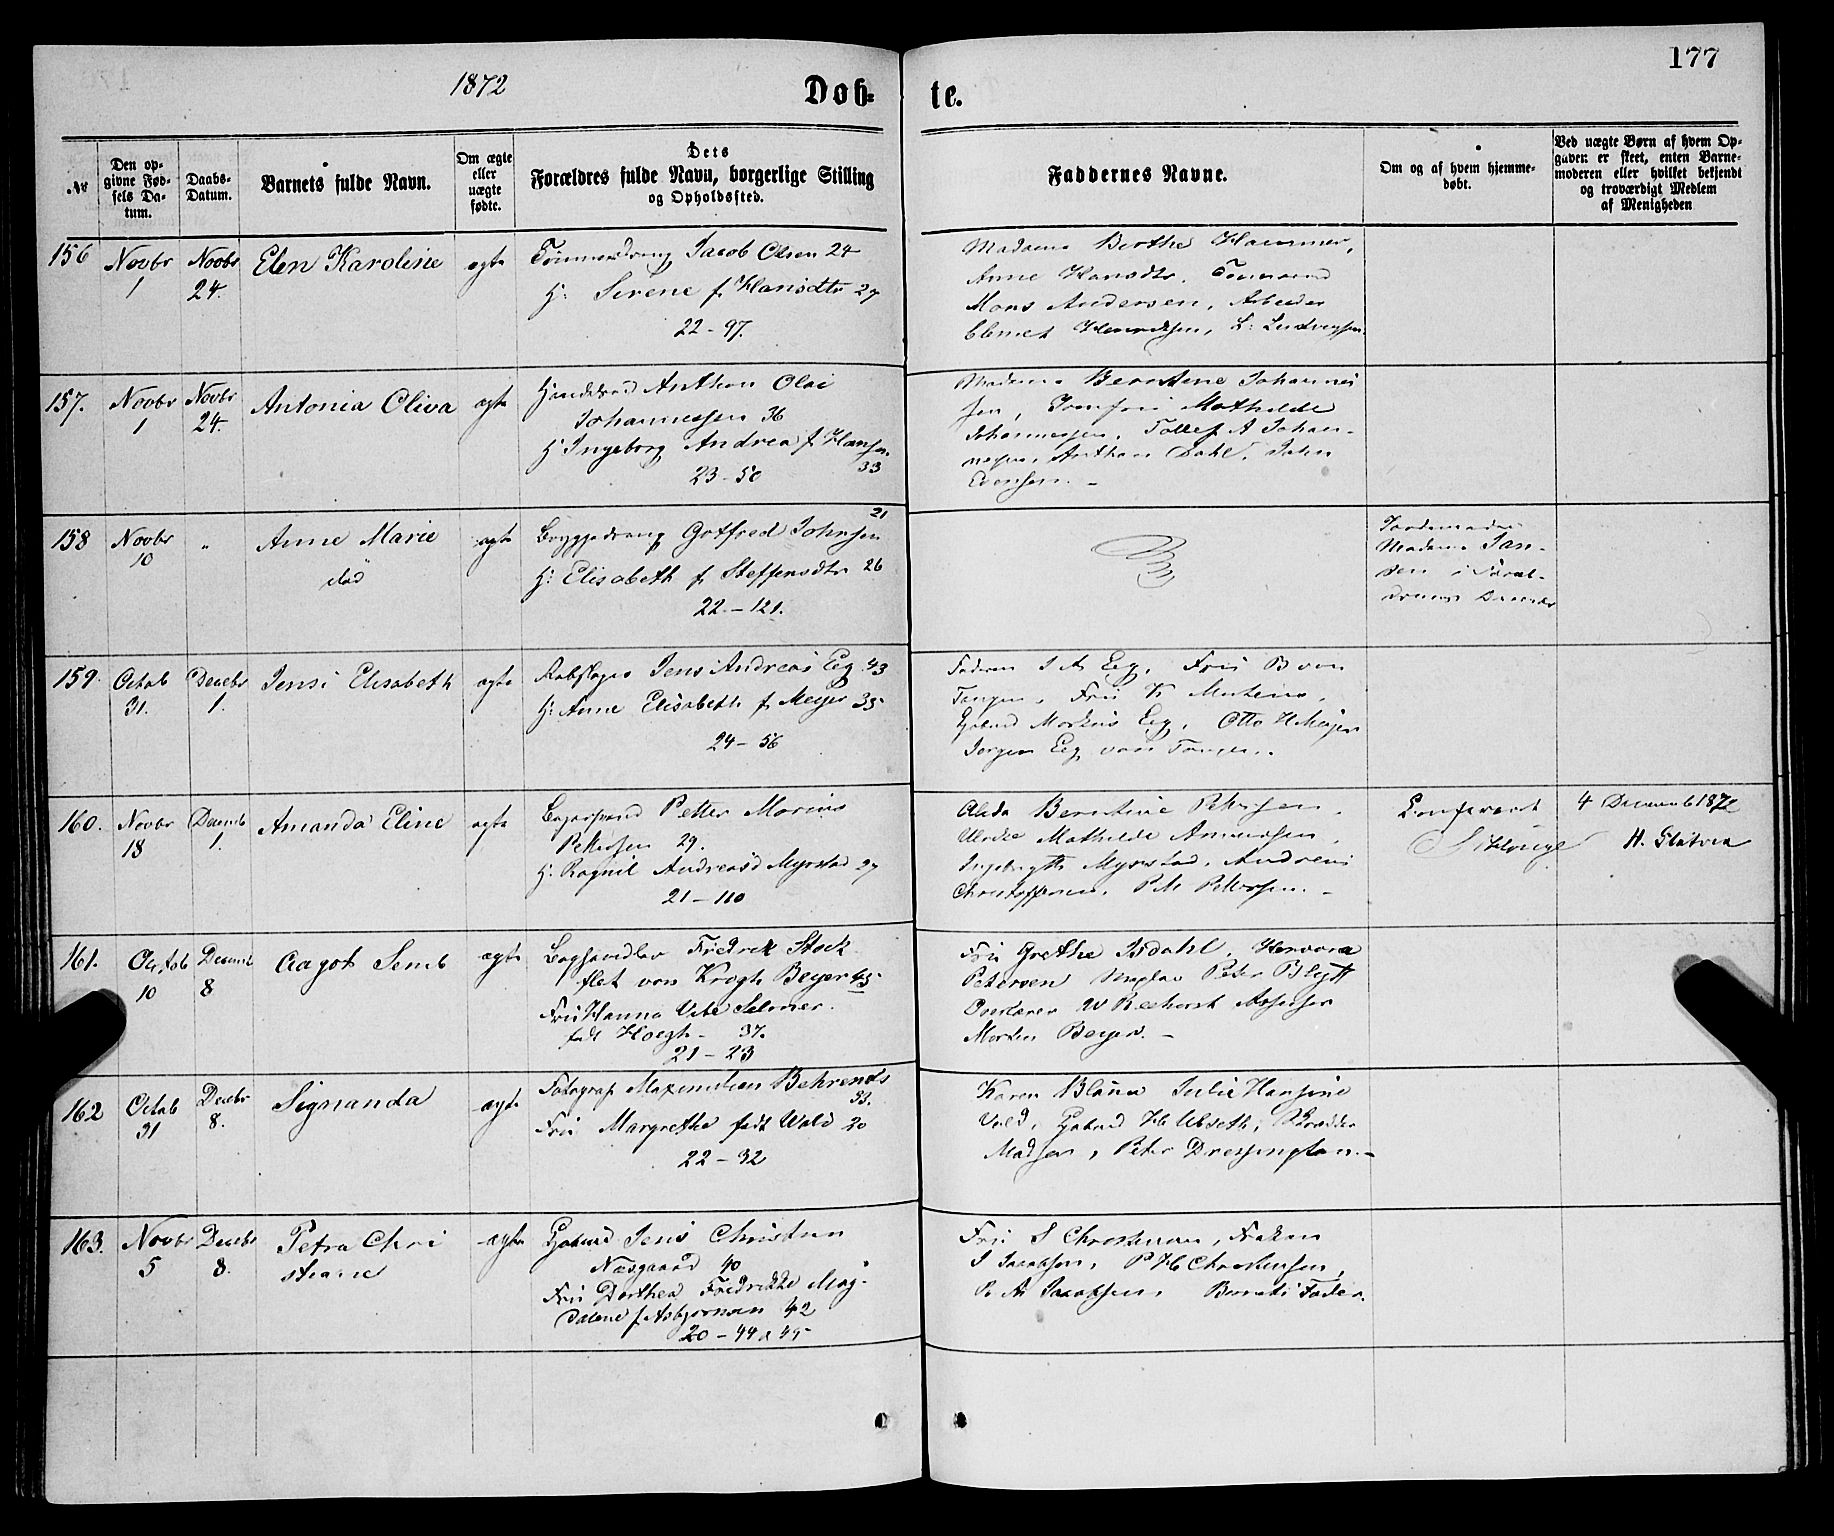 177
1872
Døb= te.
Nr
Den op-
givne Fød-
sels Da-
tum.
Daabs-
Datum.
Barnets fulde Navn.
Om ægte
eller
uægte
fødte.
Dets
Forældres fulde Navn, borgerlige Stilling
og Opholdssted.
Faddernes Navne.
Om og af hvem hjemme-
døbt.
Ved uægte Børn af hvem Op-
gaven er skeet, enten Barne-
moderen eller hvilket bekjendt
og troværdigt Medlem
af Menigheden
156
Novbr
1
Novbr
24.
Elen Karoline
ægte
Tømmerdreng Jacob Olsen 24
H: Sirene f Hansdtr 27
22-97.
Madame Berthe Hammer,
Anne Hansdtr,
Mons Andersen, Arbeider
157.
Novbr
1
Novbr
24.
Antonia Oliva
ægte
Anthon Olai
Johannessen 36
H Ingeborg Andrea f Hansen
33
23-50
Madame Berntine Johannes
sen, Jomfru Mathilde
Johannessen, Tollef A Johan-
nessen, Anthon Dahl, John
Evensen. -
158
Novbr
10
"
Anne Marie
død
ægte
21
Bryggedreng Gotfred Johnsen
H: Elisabeth f Steffensdtr 26
22-121.
Jordemoder
Madame Jan-
159.
Octob
31.
Decebr
1.
Jensi Elisabeth
ægte
Rebslager Jens Andreas Eeg 43
H: Anne Elisabeth f Meyer 35
24-56
Faderen J A Eeg, Fru B von
Tangen, Fru K Martens,
Markus Eeg, Otto H Meyer
Jørgen Eeg von Tangen.
160.
Novbr
18
Decemb
1.
Amanda Eline
ægte
Petter Marius
Pettersen 29.
H: Ragnil Andreasd Myrstad 27
21-110
Alida Berntine Pettersen,
Mathilde Amundsen,
Myrstad, Andreas
Christoffersen, P M Pettersen. -
4 Decemb 1872
161.
Octob
10
Decemb
8
Aagot Semb
ægte
Boghandler Fredrik Stock
flet von Krogh Beyer 45
Fru Hanna Vibe Selmer
født Hoegh - 37.
21-23
Fru Grethe Isdahl,
Petersen Mægler Peter Blytt
Overlærer W Reehorst Assessor
Morten Beyer. -
162
Octob
31
Decebr
8.
Signanda
ægte
Fotograf Maximilian Behrends
53.
Fru Margrethe født Wold 20
22-32
Karen Julie Hansine
Vold,
Madsen, Peter
163.
Novbr
5
Decebr
8.
Petra Chri
stiane
ægte
Jens Christian
Næsgaard 40
Fru Dorthea Fredrikke Mag-
dalene f Asbjørnsen 42
20-44 a 45
Fru S Christensen, Frøken
J Jacobsen, P H Christensen,
Jacobsen, Barnets Fader.